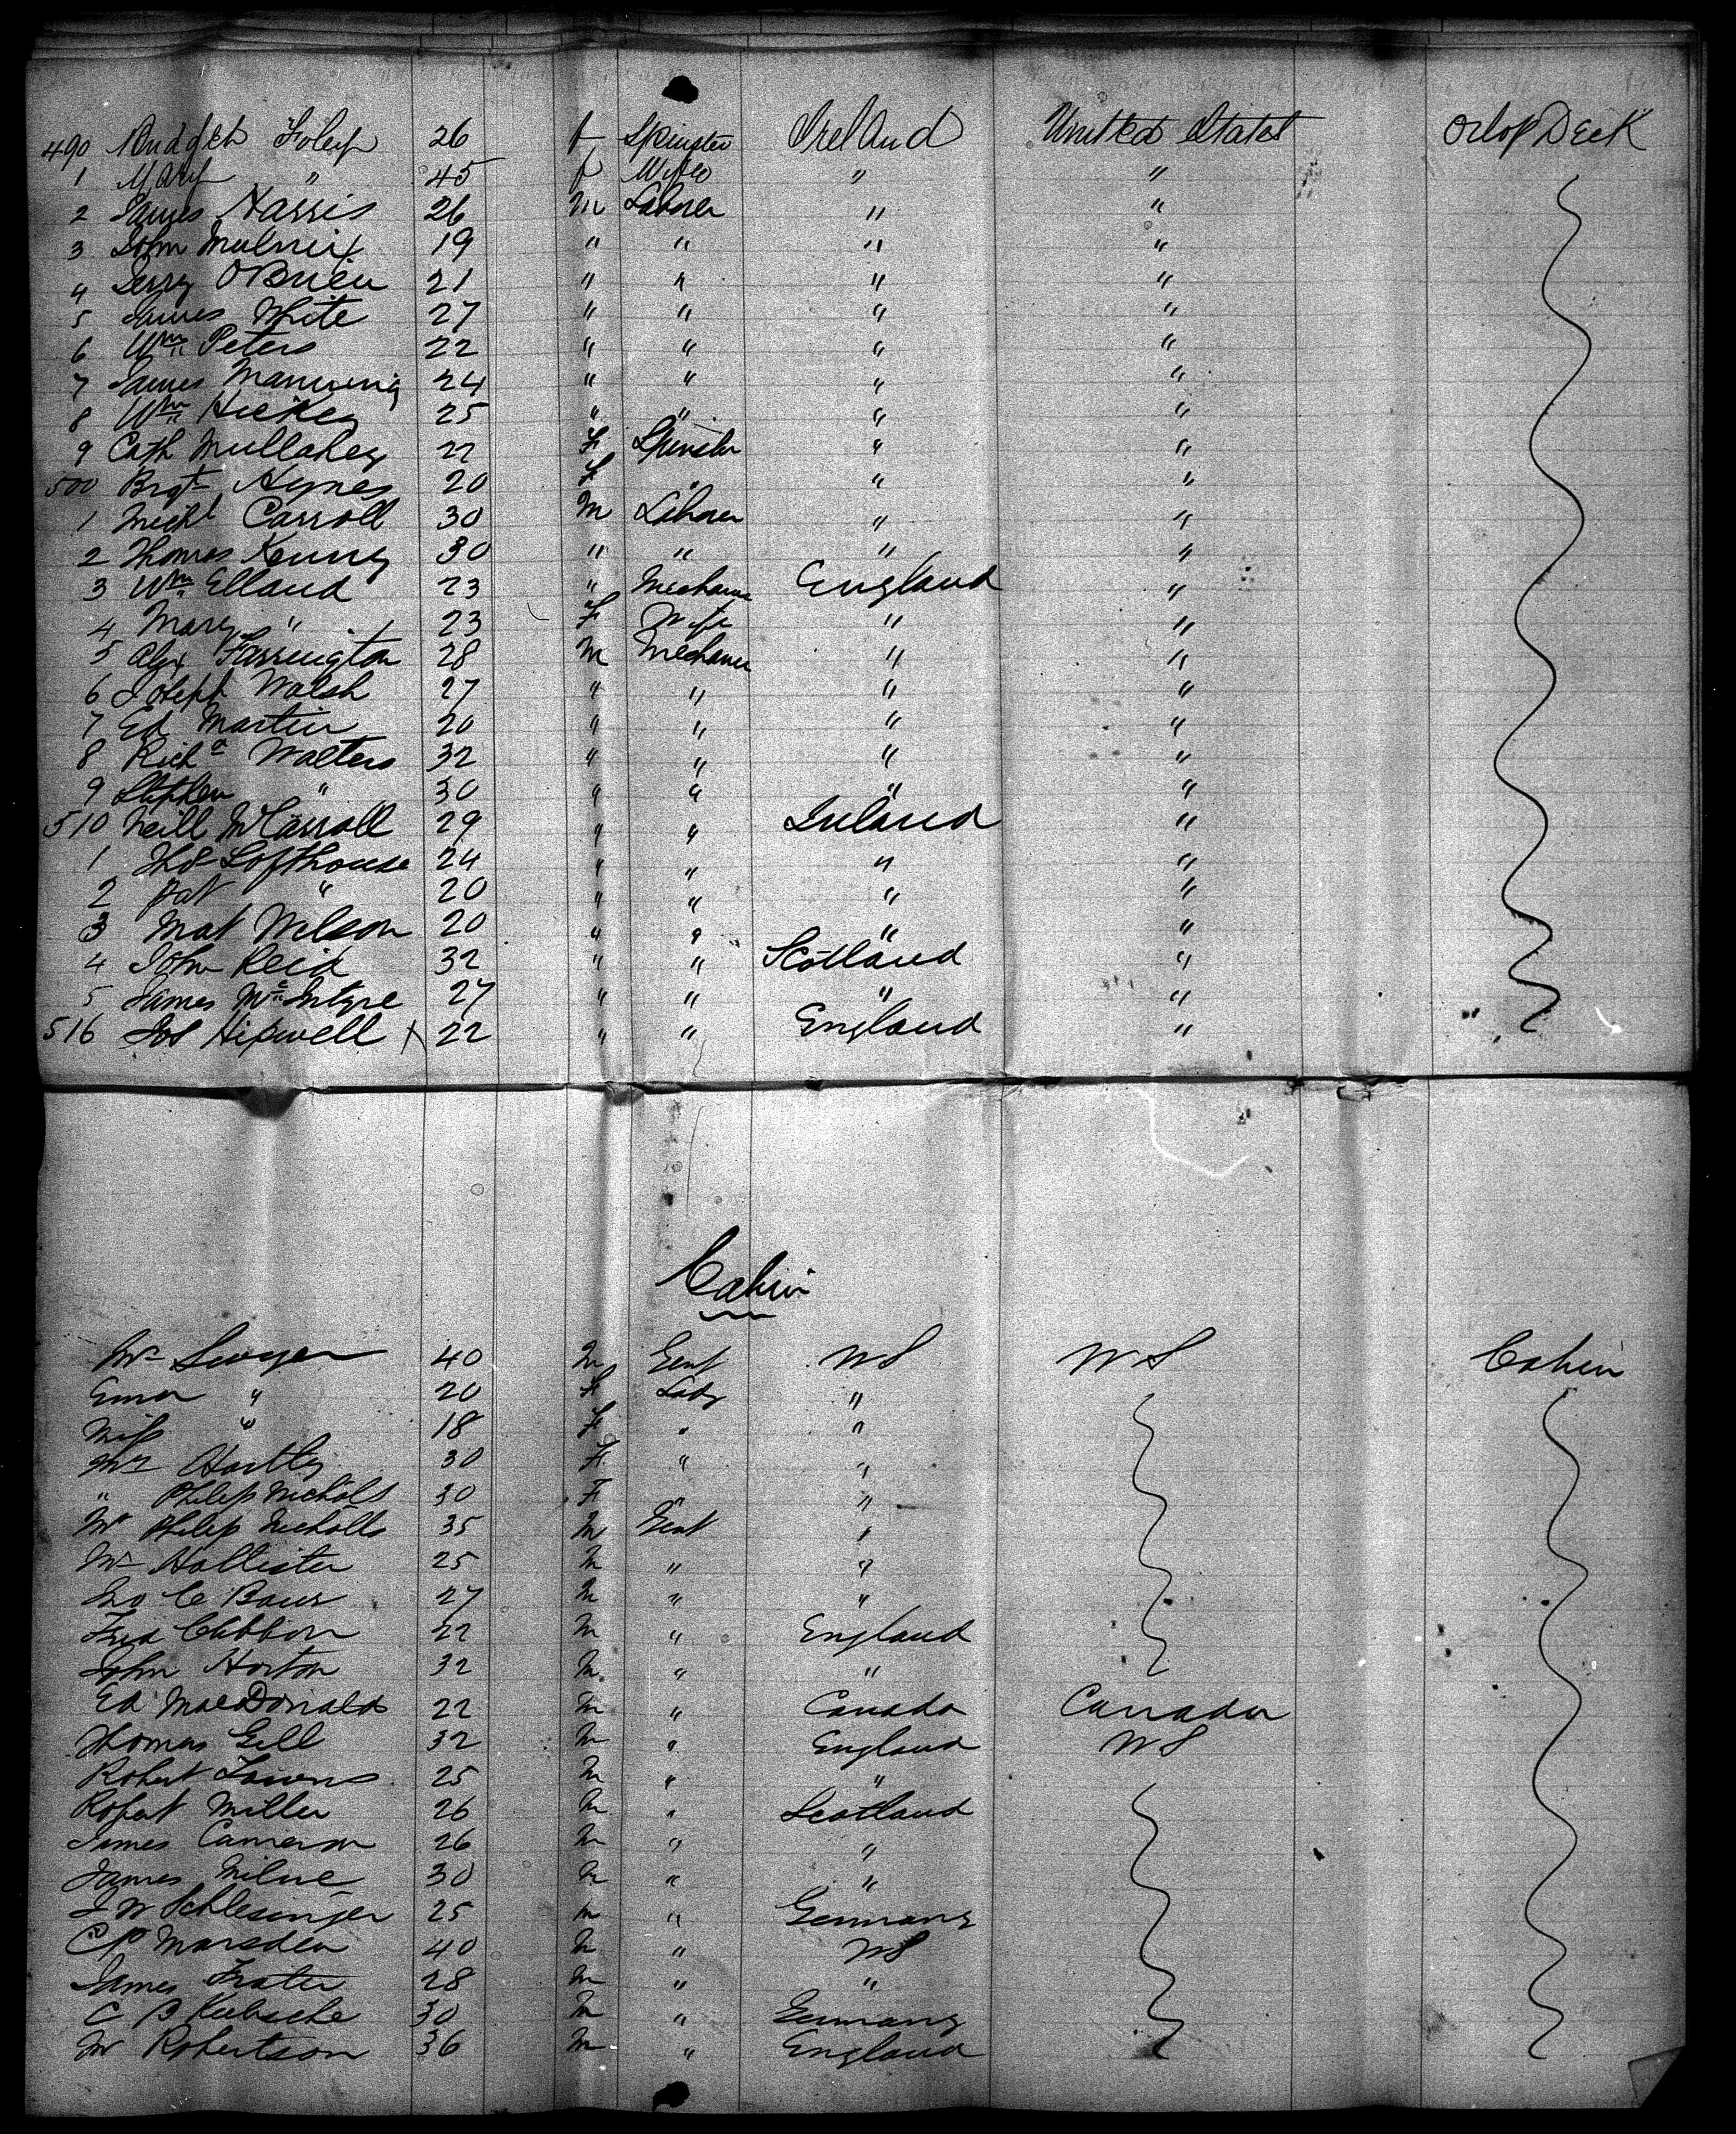 490 Bridget Foley 26 f Spinster Ireland United States Orlop Deck
1 Mary " 45 f Wife " "
2 James Harris 26 m Laborer " "
3 John 19 " " " "
4 Jerry OBrien 21 " " " "
5 James White 27 " " " "
6 Wm Peters 22 " " " "
7 James Manning 24 " " " "
8 Wm Hickey 25 " " " "
9 Cath Mullahey 22 F Spinster " "
500 Brgt Hynes 20 F " " "
1 Michl Carroll 30 M Laborer " "
2 Thomas Kenny 30 " " " "
3 Wm Elland 23 " Mechanic England "
4 Mary " 23 F Wife " "
5 Alex Farrington 28 M Mechanic " "
6 Joseph Walsh 27 " " " "
7 Ed Martin 20 " " " "
8 Richd Walters 32 " " " "
9 Stephen " 30 " " " "
510 Neill McCarroll 29 " " Ireland "
1 Thos Lofthouse 24 " " " "
2 Pat " 20 " " " "
3 Mat Wilson 20 " " " "
4 John Reid 32 " " Scotland "
5 James McIntyre 27 " " " "
516 Jos Hipwell X 22 " " England "
Cabin
Mr 40 M Gent US US Cabin
Emer " 20 F Lady "
Miss " 18 F " "
Mrs Hartley 30 F " "
" Philip Nicholls 30 F " "
Mr Philip Nicholls 35 M Gent "
Mr Hollister 25 M " "
Jno C Baur 27 M " "
Fred Clibbon 22 M " England
John Horton 32 M " "
Ed MacDonald 22 M " Canada Canada
Thomas Gill 32 M " England US
Robert Towns 25 M " "
Robert Miller 26 M " Scotland
James Cameron 26 M " "
James Milne 30 M " "
J W Schlesinger 25 M " Germany
C P Marsden 40 M " US
James Frater 28 M " "
C B 30 M " Germany
Mr Robertson 36 M " England